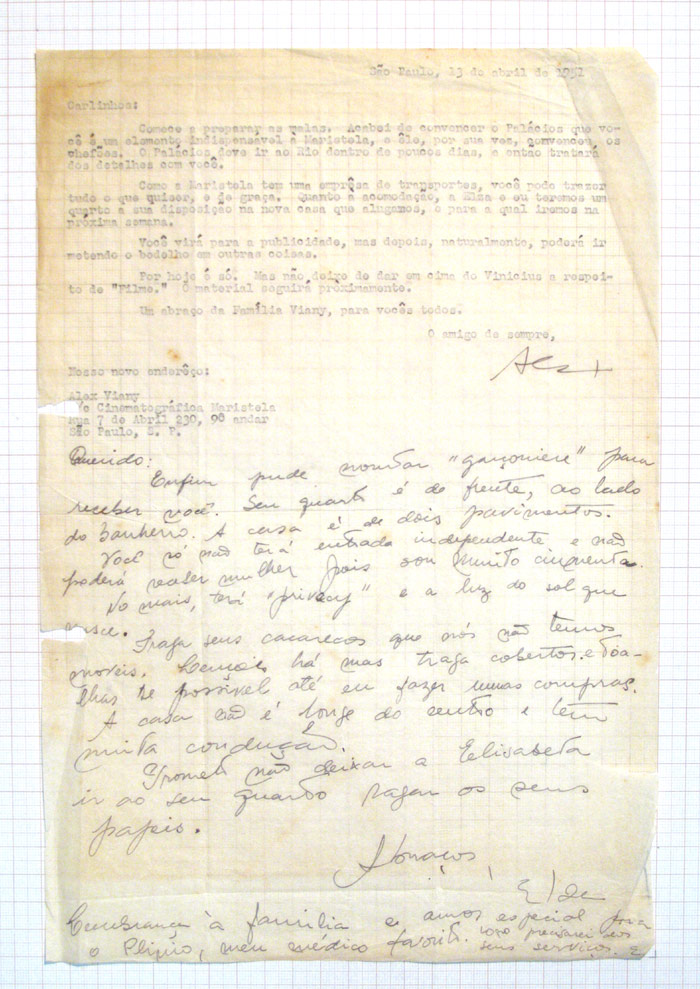 São Paulo, 13 de abril de 1951
Carlinhos:
Comece a preparar as malas. Acabei de convencer o Palácios que vo-
cê é um elemento indispensável à Maristela, e êle, por sua vez, convenceu os
chefões. O Palácios deve ir ao Rio dentro de poucos dias, e então tratará
dos detalhes com você.
Como a Maristela tem uma emprêsa de transportes, você pode trazer
tudo o que quiser, e de graça. Quanto à acomodação, a Elza e eu teremos um
quarto a sua disposição na nova casa que alugamos, e para a qual iremos na
próxima semana.
Você virá para a publicidade, mas depois, naturalmente, poderá ir
metendo o bodelho em outras coisas.
Por hoje é só. Mas não deixe de dar em cima do Vinicius a respei-
to de "Filme." O material seguirá próximamente.
Um abraço da Família Viany, para vocês todos.
O amigo de sempre,
Alex
Nosso novo enderêço:
Alex Viany
Cinematográfica Maristela
Rua 7 de Abril 230, 9º andar
São Paulo, S. P.
Querido:
Enfim pude montar "garçoniere" para
receber você. Seu quarto é de frente, ao lado
do banheiro. A casa é de dois pavimentos.
Você só não terá entrada independente e não
poderá receber mulher pois sou muito ciumenta.
No mais, terá "privacy" e a luz do sol que
nasce.
Traga seus cacarecos que nós não temos
moveis. Lençois há mas traga cobertos e toa-
lhas se possivel até eu fazer umas compras.
A casa não é longe do centro e tem
muita condução.
Prometo não deixar a Elisabeta
ir ao seu quarto rasgar os seus
papeis.
Abraços,
Elza
Lembrança à familia e amor especial para
o Plinio, meu médico favorito. Logo precisarei seus
seus serviços. E